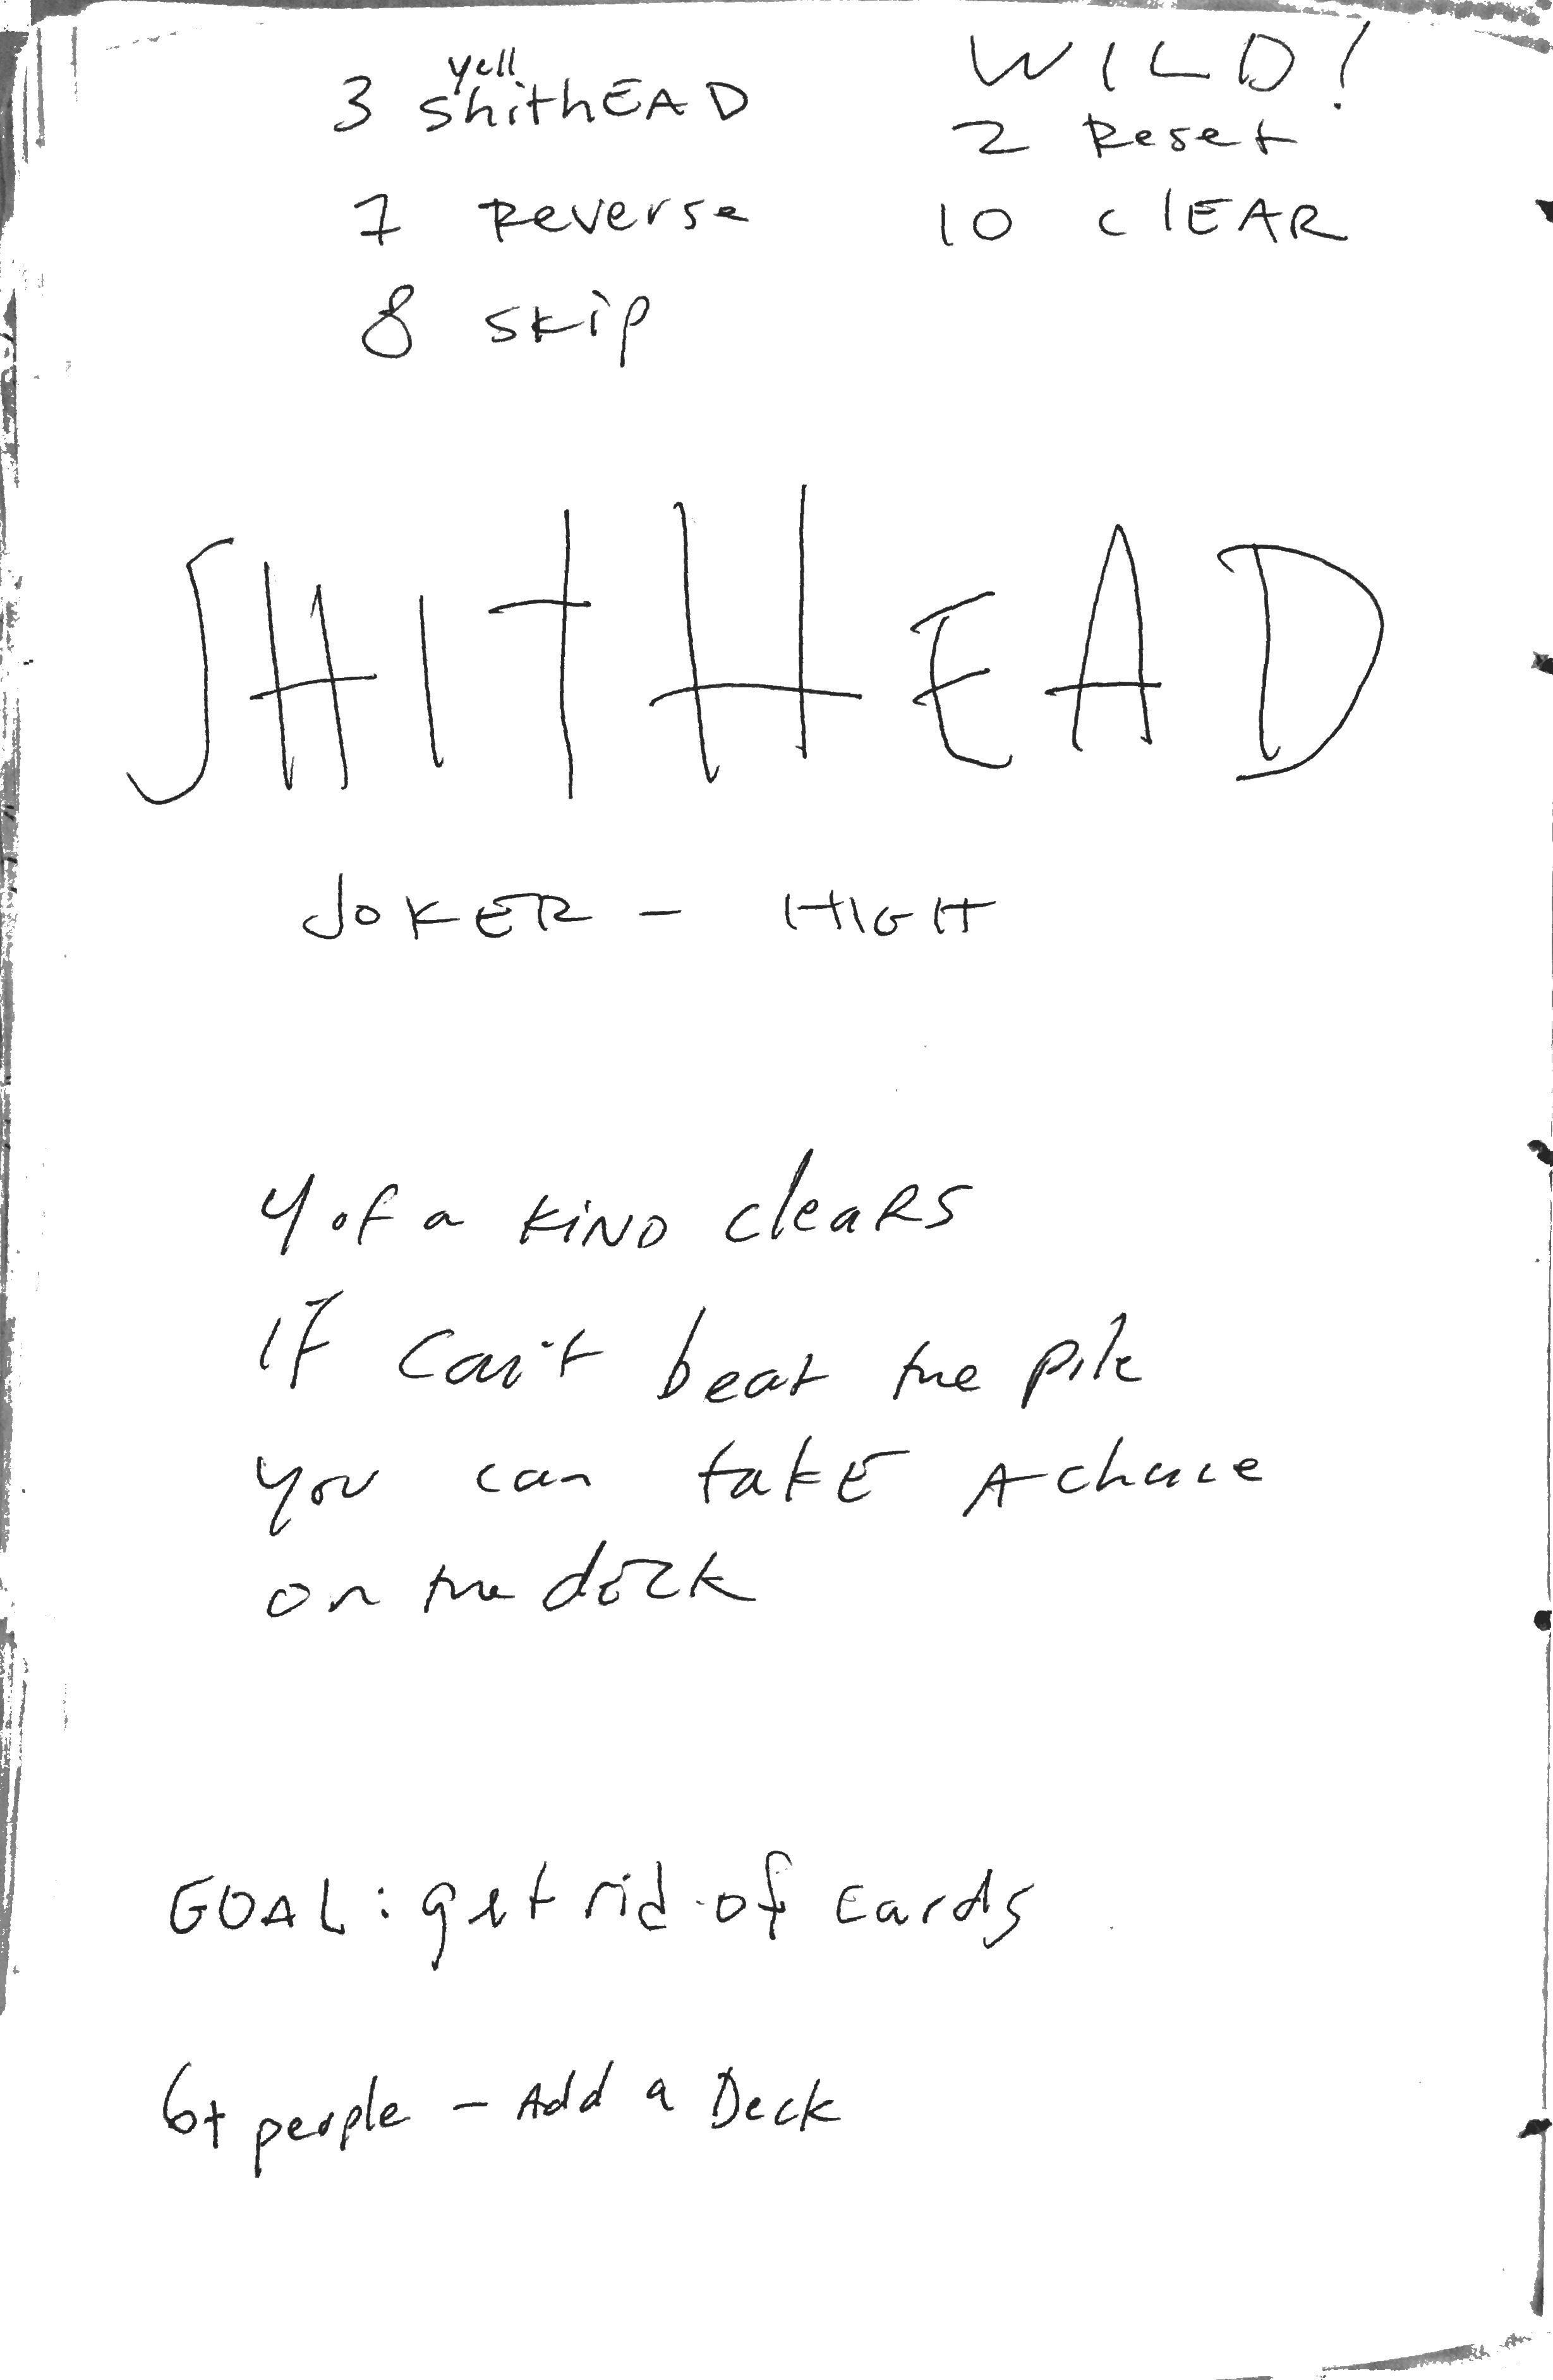 3 yell shithEAD
7 Reverse
8 skip
WILD!
2 Reset
10 clEAR
SHITHEAD
JOKER - HIGH
4 of a KIND cleaRS
If can't beat the pile
you can takE A chance
on the dEck
GOAL: get rid of cards
6+ people - Add a Deck